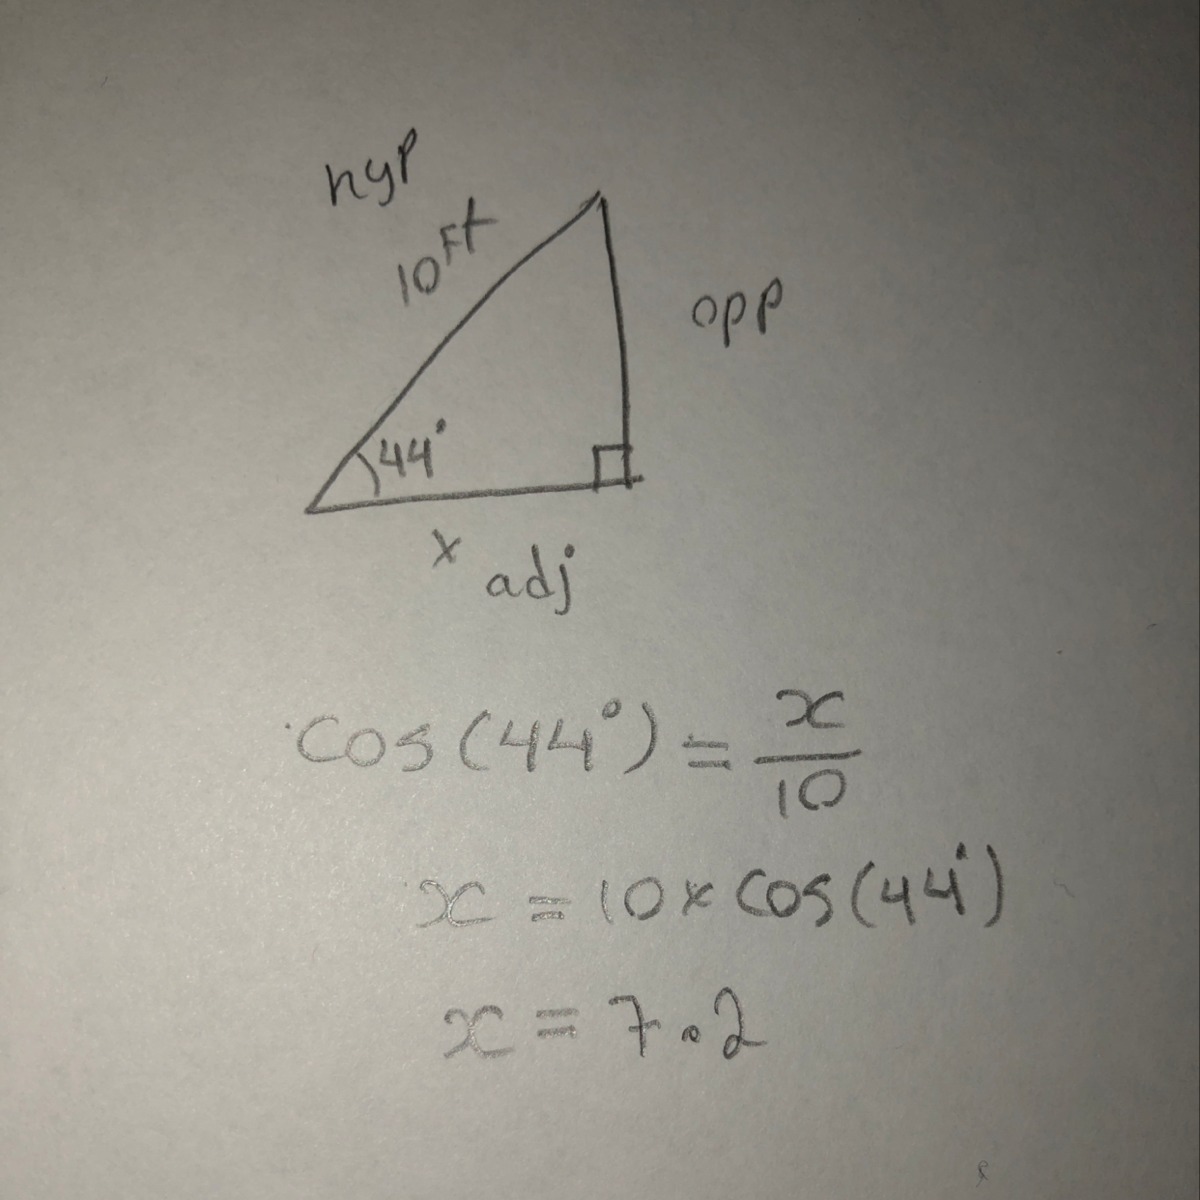 hyp
10 Ft
opp
44°
x
adj
cos(44°) = x/10
x = 10 × cos(44°)
x = 7.2